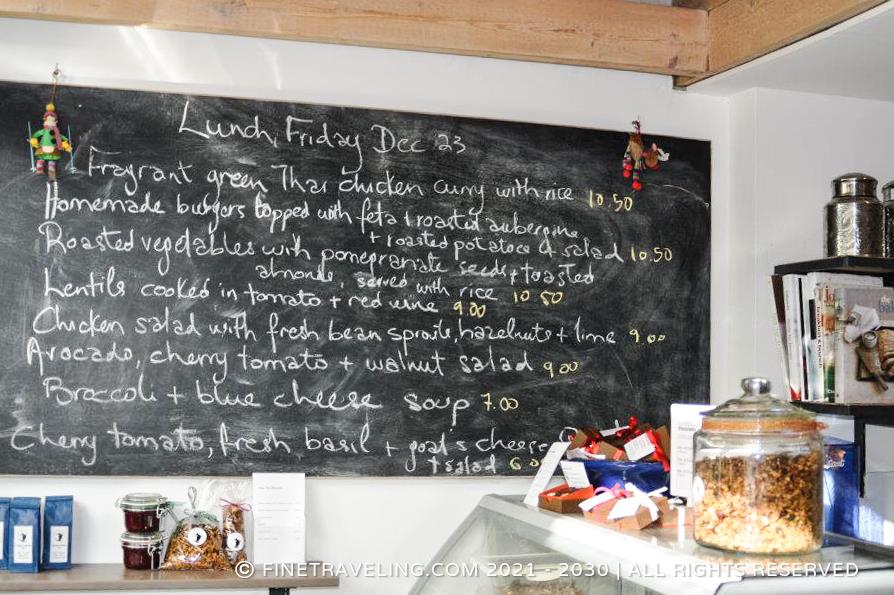 Lunch, Friday Dec 23
Fragrant green Thai chicken curry with rice 10.50
Homemade burgers topped with feta + roasted aubergine
+ roasted potatoes & salad 10.50
Roasted vegetables with pomegranate seeds + toasted
almonds, served with rice 10 50
Lentils cooked in tomato + red wine 9.00
Chicken salad with fresh bean sprouts, hazelnuts + lime 9.00
Avocado, cherry tomato + walnut salad 9.00
Broccoli + blue cheese soup 7.00
Cherry tomato, fresh basil + goat's cheese
+ salad
© FINETRAVELING.COM 2021 - 2030 | ALL RIGHTS RESERVED